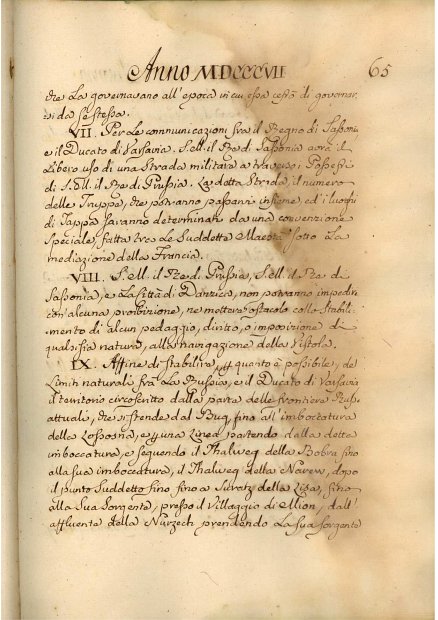 Anno MDCCCVII
65
che La governavano all'epoca in cui essa cessò di governar=
si da se stessa.
VII. Per Le communicazioni fra il Regno di Sassonia
e il Ducato di Varsavia. S. M. il Re di Sassonia avrà il
Libero uso di una Strada militare a traverso i Possessi
di S. M. il Re di Prussia. La detta Strada, il numero
delle Truppe, che potranno passarvi insieme ed i luoghi
di Tappa saranno determinati da una convenzione
Speciale, fatta tra Le Suddette Maestà sotto La
mediazione della Francia.
VIII. S. M. il Re di Prussia, S. M. il Re di
Sassonia, e La Città di Danzica, non potranno impedir
con alcuna proibizione, ne mettere ostacolo collo Stabili=
mento di alcun pedaggio, diritto, o imposizione di
qualsisia natura, alla navigazione della Vistola.
IX. Affine di stabilire, quanto è possibile, de
Limiti naturali fra La Russia, e il Ducato di Varsavia
il territorio circoscritto dalla parte delle frontiere Russ
attuali, che si stende dal Bug, fino all'imboccatura
della Lossosna, e una Linea partendo dalla detta
imboccatura, e seguendo il Thalweg della Bobra fino
alla sua imboccatura, il Thalweg della Narew, dopo
il punto Suddetto fino a Suratz della Lisa, fino
alla Sua Sorgente, presso il Villaggio di Mion, dall'
affluente della Nurzeck prendendo La sua sorgente